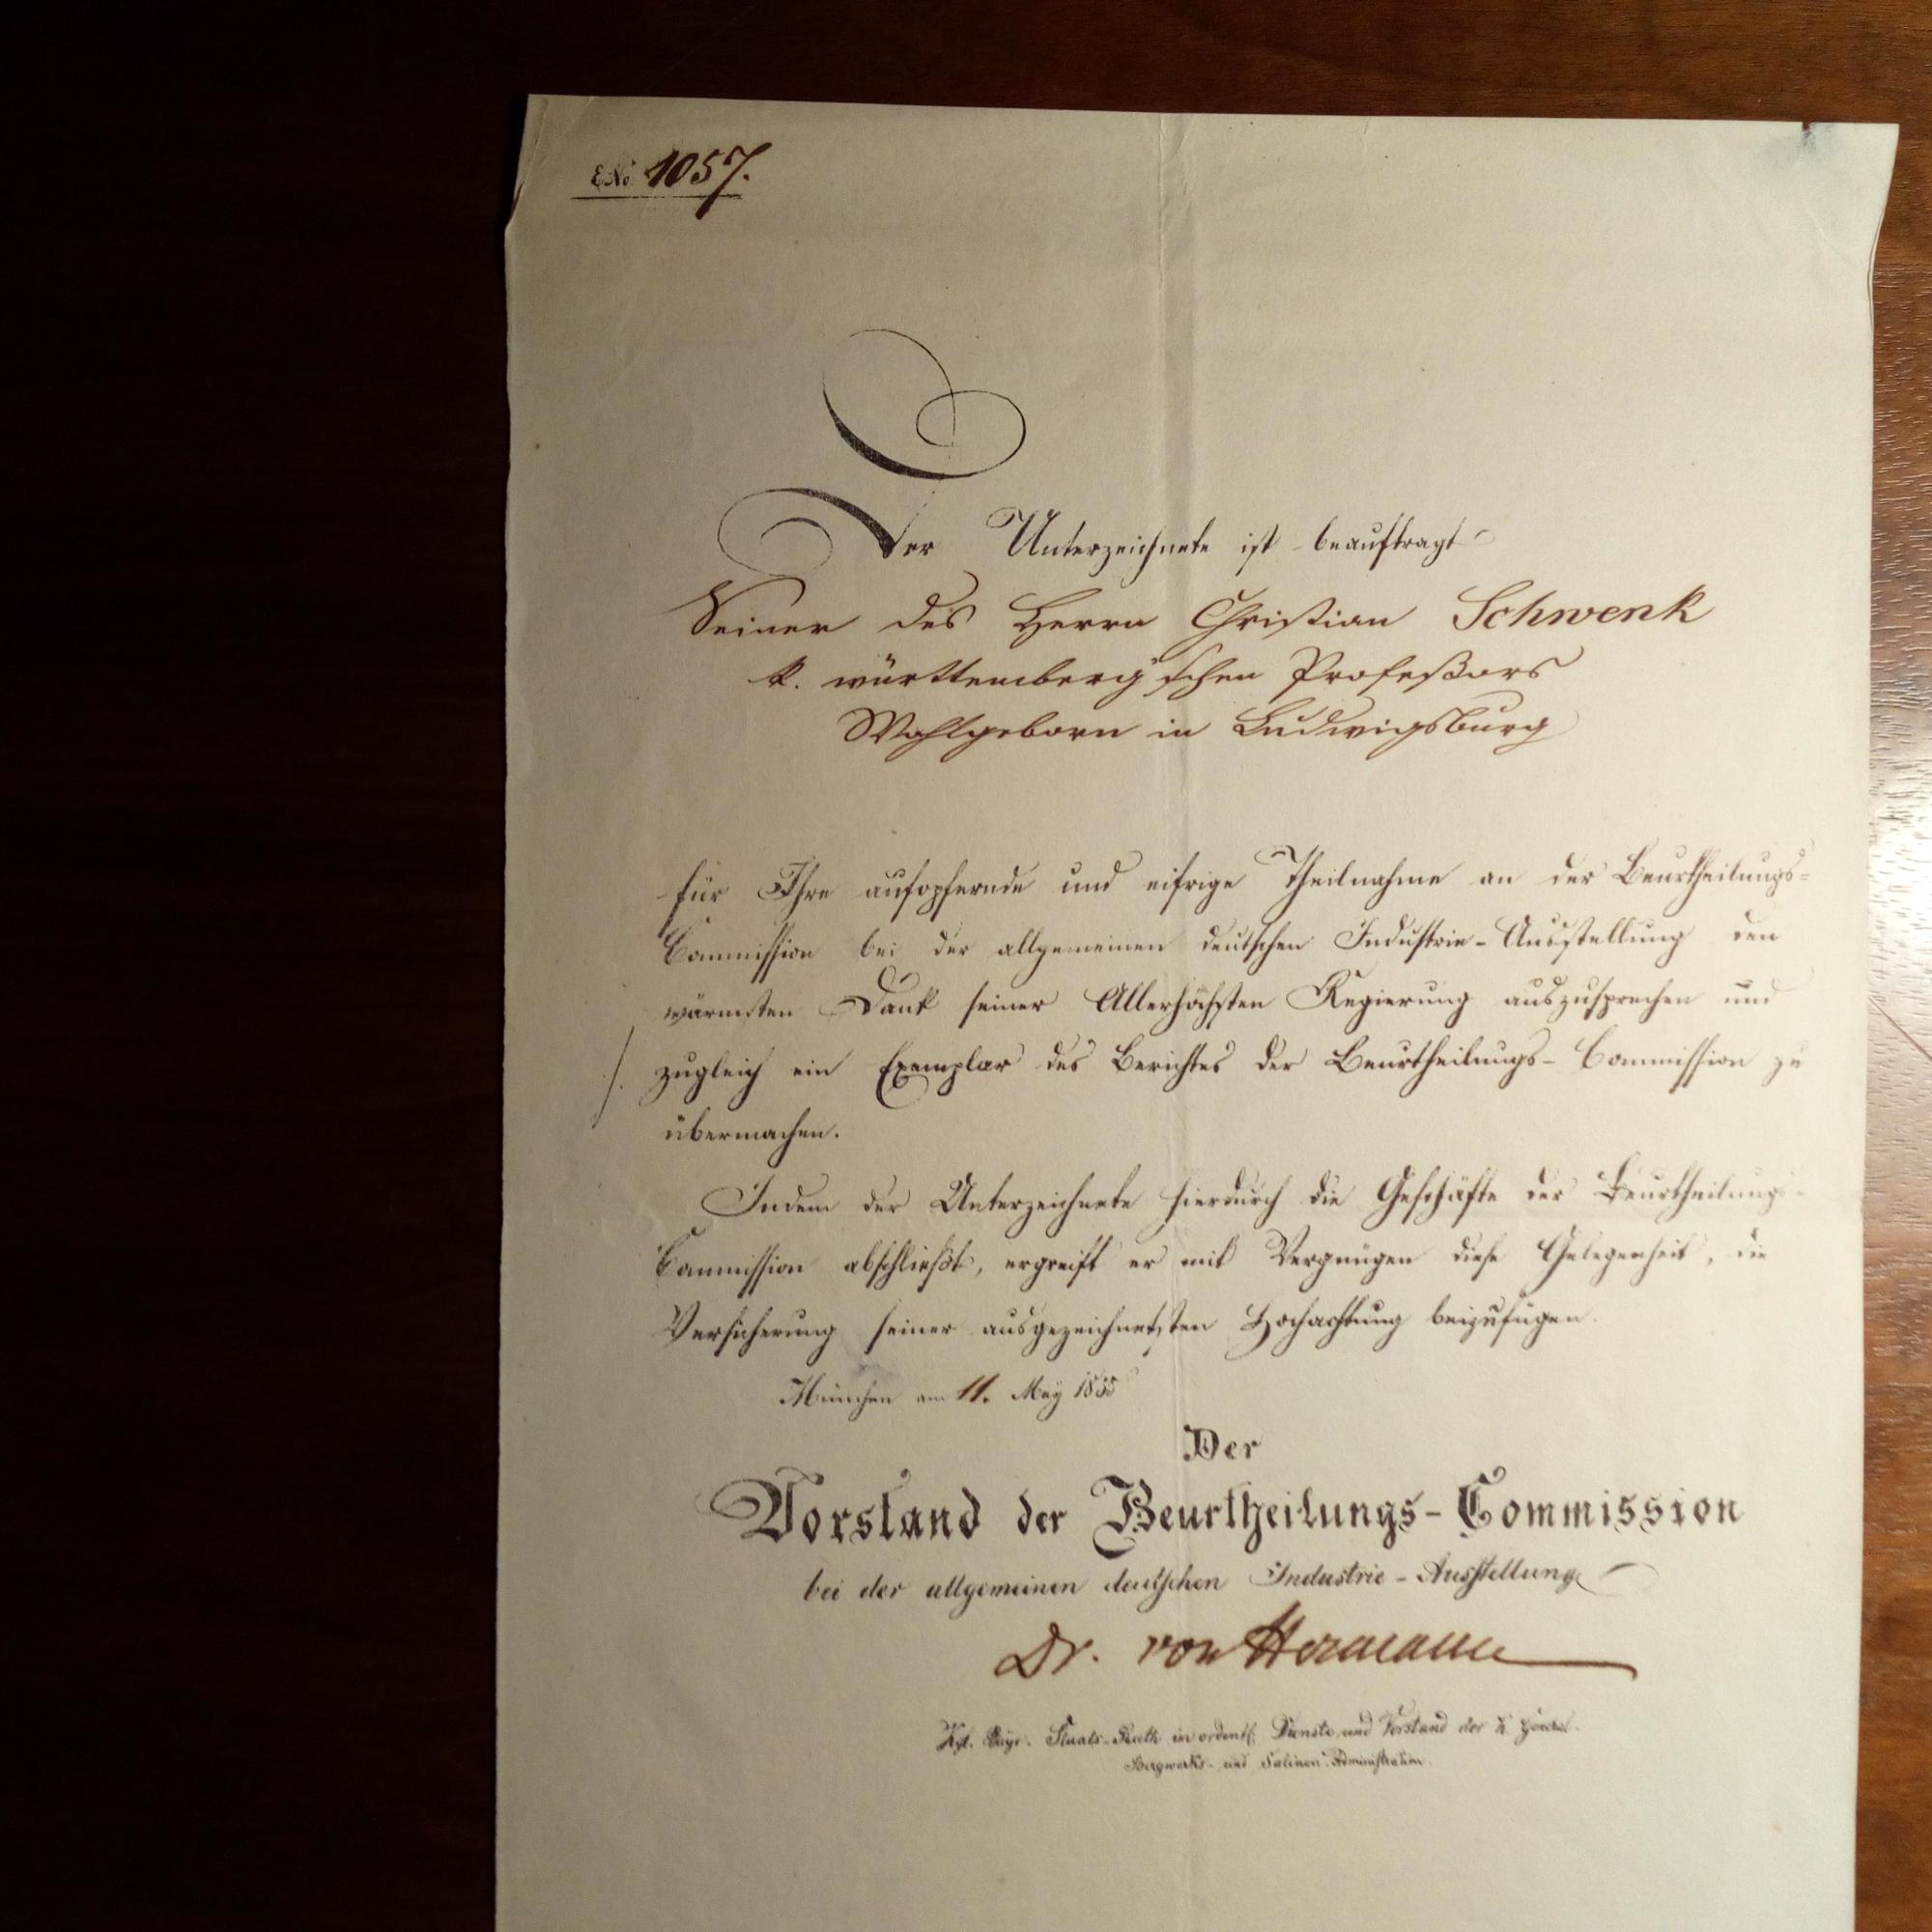 E.No. 1057.
Der Unterzeichnete ist beauftragt
Seiner des Herrn Christian Schwenk
k. württemberg'schen Profeßors
Wohlgeborn in Ludwigsburg
für Ihre aufopfernde und eifrige Theilnahme an der Beurtheilungs-
Commission bei der allgemeinen deutschen Industrie-Ausstellung den
wärmsten Dank seiner Allerhöchsten Regierung auszusprechen und
./. zugleich ein Exemplar des Berichtes der Beurtheilungs-Commission zu
übermachen.
Indem der Unterzeichnete hierdurch die Geschäfte der Beurtheilungs-
Commission abschließt, ergreift er mit Vergnügen diese Gelegenheit, die
Versicherung seiner ausgezeichnetsten Hochachtung beizufügen.
München am 11. May 1855
Der
Vorstand der Beurtheilungs-Commission
bei der allgemeinen deutschen Industrie-Ausstellung
Dr. von Hermann
Kgl. Bayr. Staats-Rath in ordentl. Dienste und Vorstand der k. General-
Bergwerks- und Salinen-Administration.